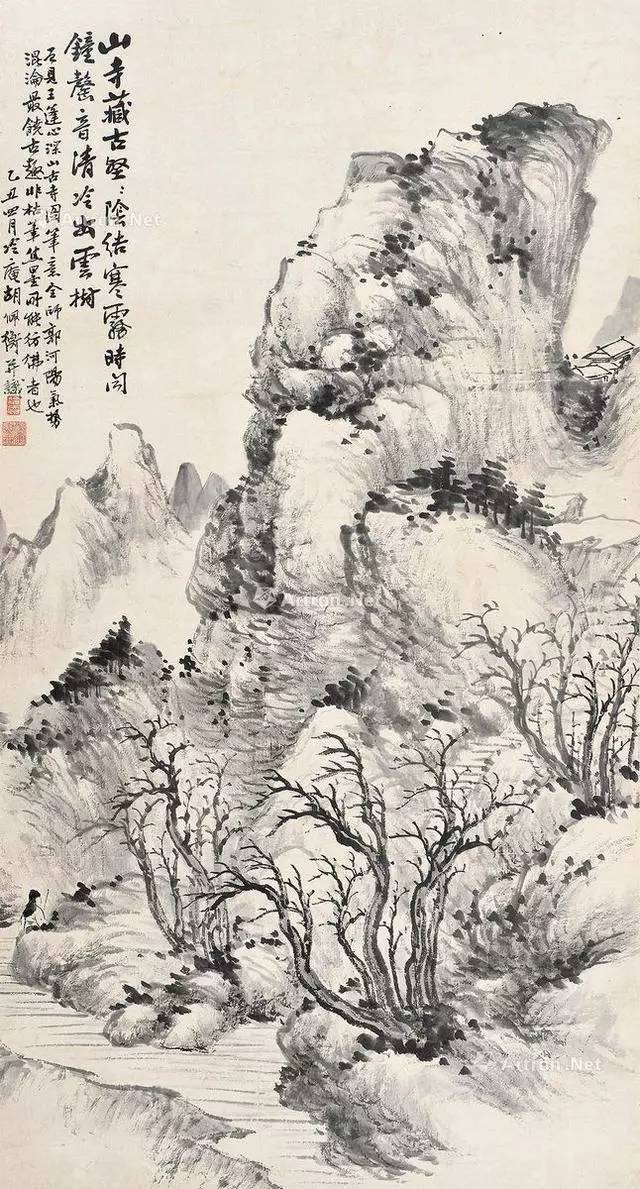 山寺藏古壑ミ陰結寒霧時聞
鐘罄音清冷出雲樹
石見王蓬心深山古寺圖筆意全師郭河陽氣勢
混淪最饒古趣非枯筆焦墨所能彷彿者也
乙丑四月冷庵胡佩衡并識
Artron.Net
Artron.Net
Artron.Net